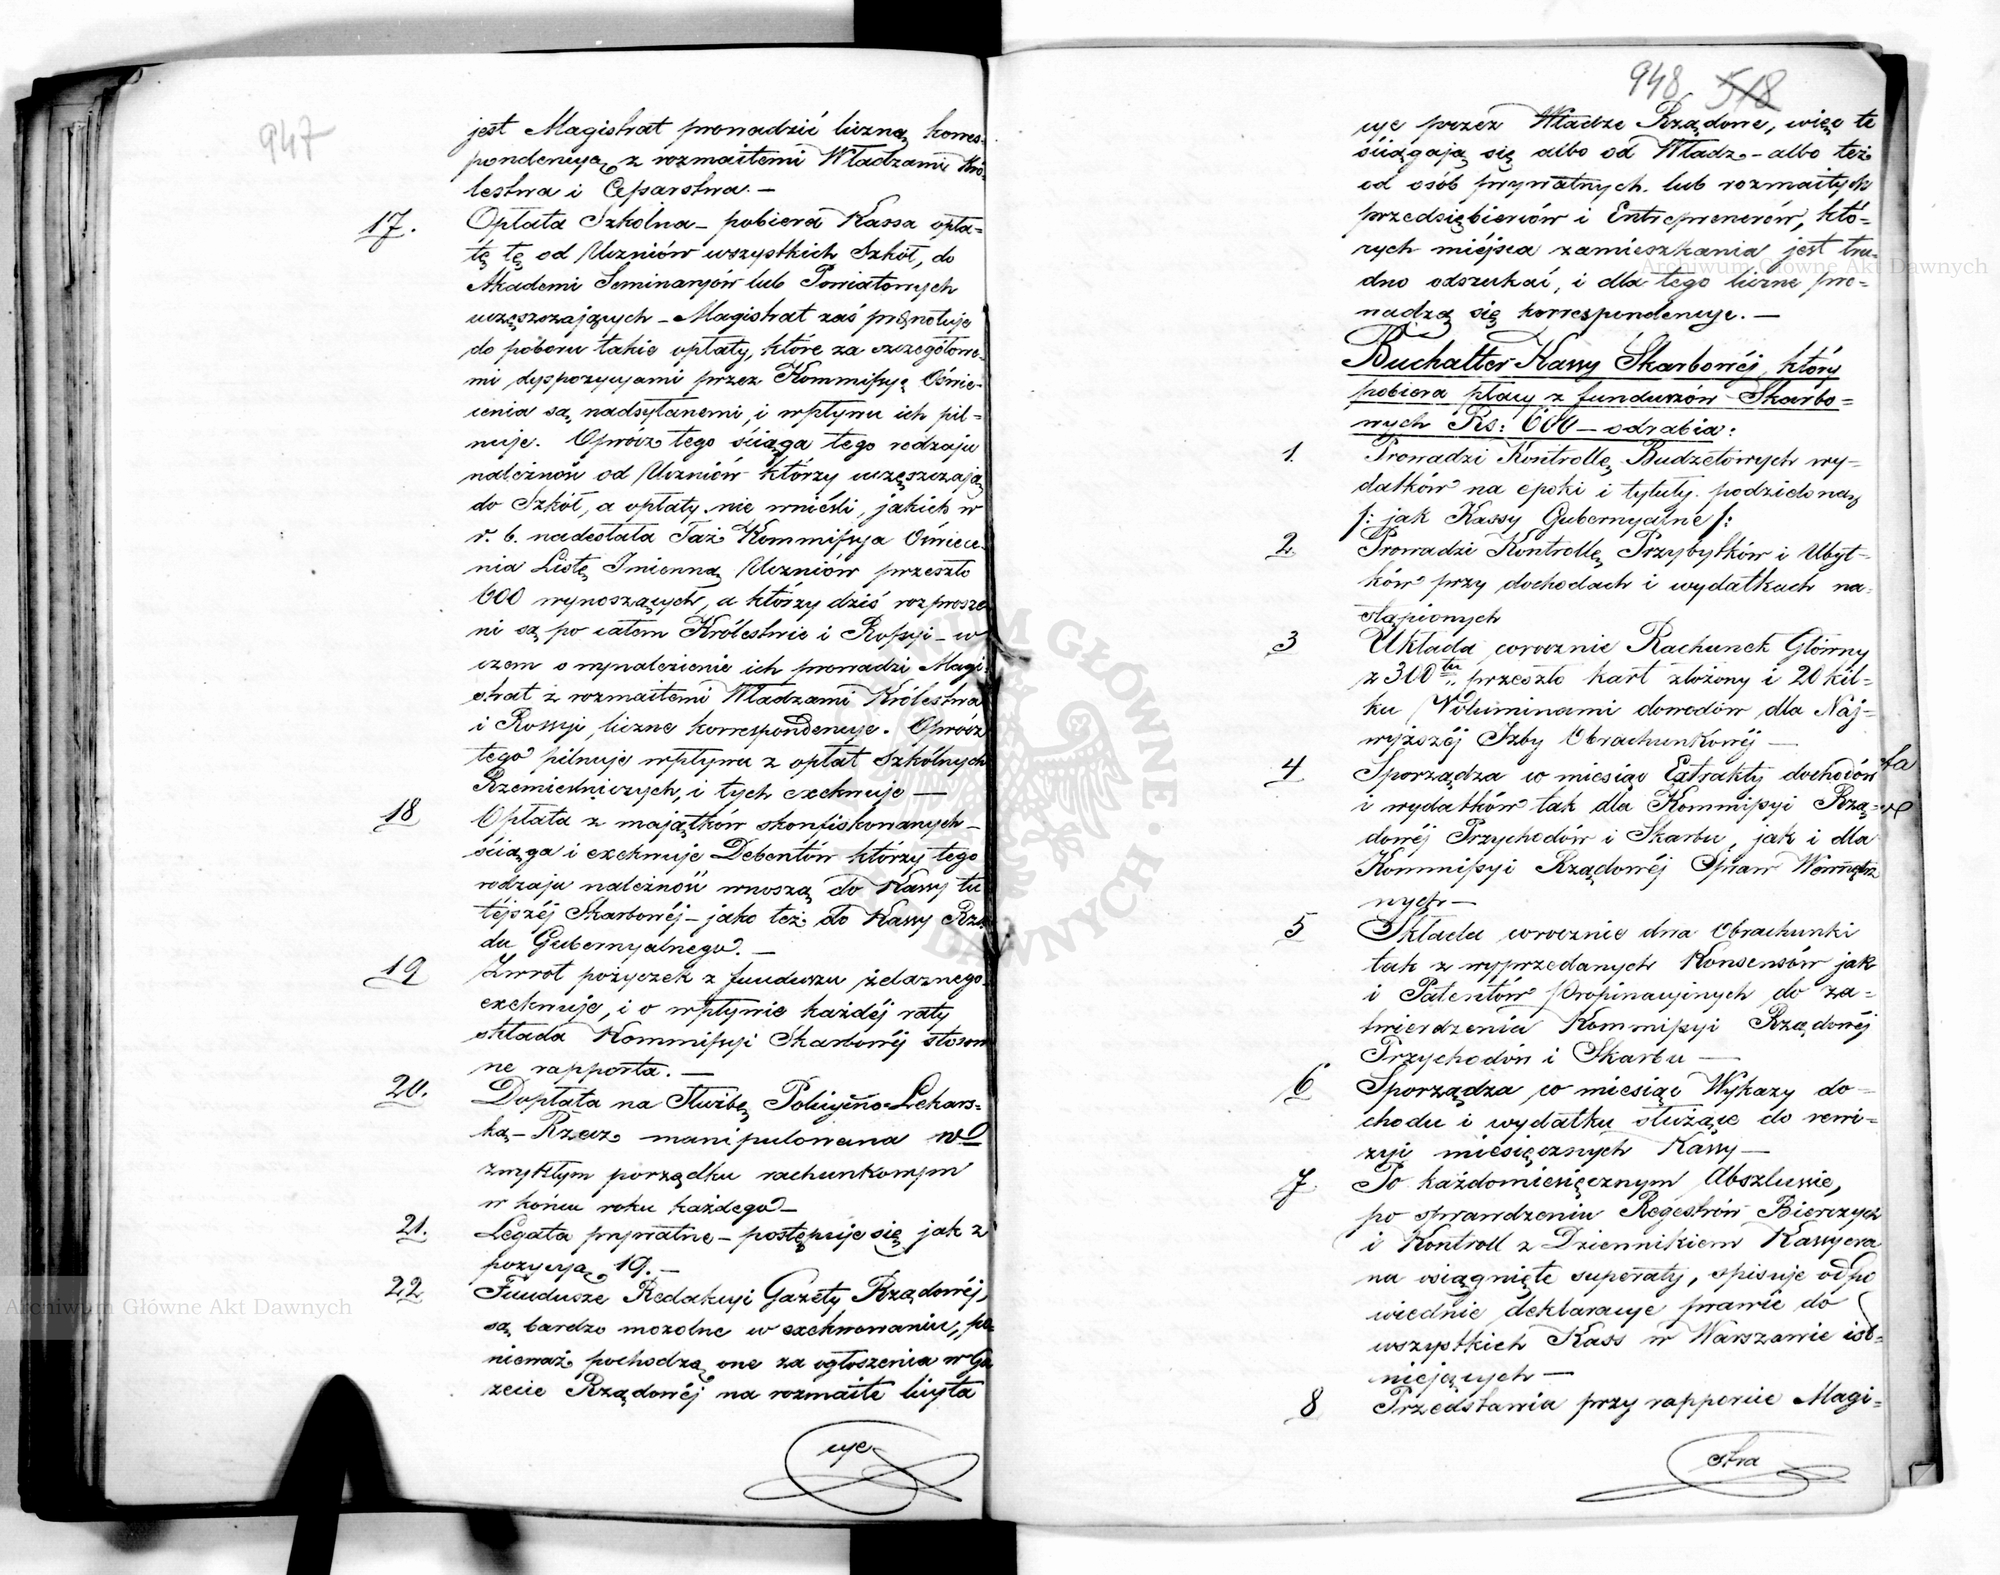 947
jest Magistrat prowadzić liczną kores-
pondencyą z rozmaitemi Władzami Kró-
lestwa i Cesarstwa. —
17. Opłata Szkolna – pobiera Kassa opła-
tę tę od Uczniów wszystkich Szkół, do
Akademi Seminarjów lub Powiatowych
uczęszczających – Magistrat zaś prenotuje
do poboru takie opłaty, które za szczegółowe-
mi dyspozycyami przez Kommissyę Oświe-
cenia są nadsyłanemi, i wpływu ich pil-
nuje. Oprócz tego ściąga tego rodzaju
należność od Uczniów którzy uczęszczają
do Szkół, a opłaty nie wnieśli, jakich w
r. b. nadesłała Taż Kommissya Oświece-
nia Listę Imienną Uczniów przeszło
600 wynoszących, a którzy dziś rozprosze-
ni są po całem Królestwie i Rossyi – w
czem o wynalezienie ich prowadzi Magi-
strat z rozmaitemi Władzami Królestwa
i Rossyi liczne korrespondencye. Oprócz
tego pilnuje wpływu z opłat Szkólnych
Rzemieślniczych, i tych exekwuje —
18 Opłata z majątków skonfiskowanych –
ściąga i exekwuje Debentów którzy tego
rodzaju należność wnoszą do Kassy tu
téjszéj Skarbowéj – jako też do Kassy Rzą
du Gubernyalnego. —
19 Zwrot pożyczek z funduszu żelaznego
exekwuje, i o wpływie każdéj raty
składa Kommissyi Skarbowéj stosow
ne rapporta. —
20. Dopłata na Służbę Policyjno-Lekars-
ką – Rzecz manipulowana w
zwykłym porządku rachunkowym
w końcu roku każdego —
21. Legata prywatne – postępuje się jak z
pozycyą 19. —
22 Fundusze Redakcyi Gazety Rządowéj,
są bardzo mozolne w exekwowaniu, po-
nieważ pochodzą one za ogłoszenia w Ga
zecie Rządowéj na rozmaite licyta
cye
948 518
cye przez Władze Rządowe, więc te
ściągają się albo od Władz – albo też
od osób prywatnych lub rozmaitych
przedsiębierców i Entreprenerów, któ-
rych miéjsca zamieszkania jest tru-
dno odszukać, i dla tego liczne pro-
wadzą się korrespondencye. —
Buchalter Kassy Skarbowéj, który
pobiera płacy z funduszów Skarbo-
wych Rs: 600 – odrabia:
1. Prowadzi Kontrollę Budżetowych wy-
datków na epoki i tytuły podzieloną
/: jak Kassy Gubernyalne /:
2. Prowadzi Kontrollę Przybytków i Ubyt-
ków przy dochodach i wydatkach na-
stąpionych
3 Układa corocznie Rachunek Główny
z 300tu przeszło kart złożony i 20 kil-
ku Voluminami dowodów dla Naj-
wyższéj Izby Obrachunkowéj —
4 Sporządza co miesiąc Extrakty dochodów
i wydatków tak dla Kommissyi Rzą-
dowéj Przychodów i Skarbu, jak i dla
Kommissyi Rządowéj Spraw Wewnętrz
nych —
5 Składa corocznie dwa Obrachunki
tak z wyprzedanych Konsensów jak
i Patentów Propinacyjnych do za-
twierdzenia Kommissyi Rządowéj
Przychodów i Skarbu —
6 Sporządza co miesiąc Wykazy do-
chodu i wydatku służące do rewi-
zyi miesięcznych Kassy —
7. Po każdomiesięcznym Abszlussie,
po sprawdzeniu Regestrów Bierczych
i Kontroll z Dziennikiem Kassyera
na osiągnięte superaty, spisuje odpo
wiednie deklaracye prawie do
wszystkich Kass w Warszawie ist-
niejących —
8 Przedstawia przy rapporcie Magi-
stra
Archiwum Główne Akt Dawnych
Archiwum Główne Akt Dawnych